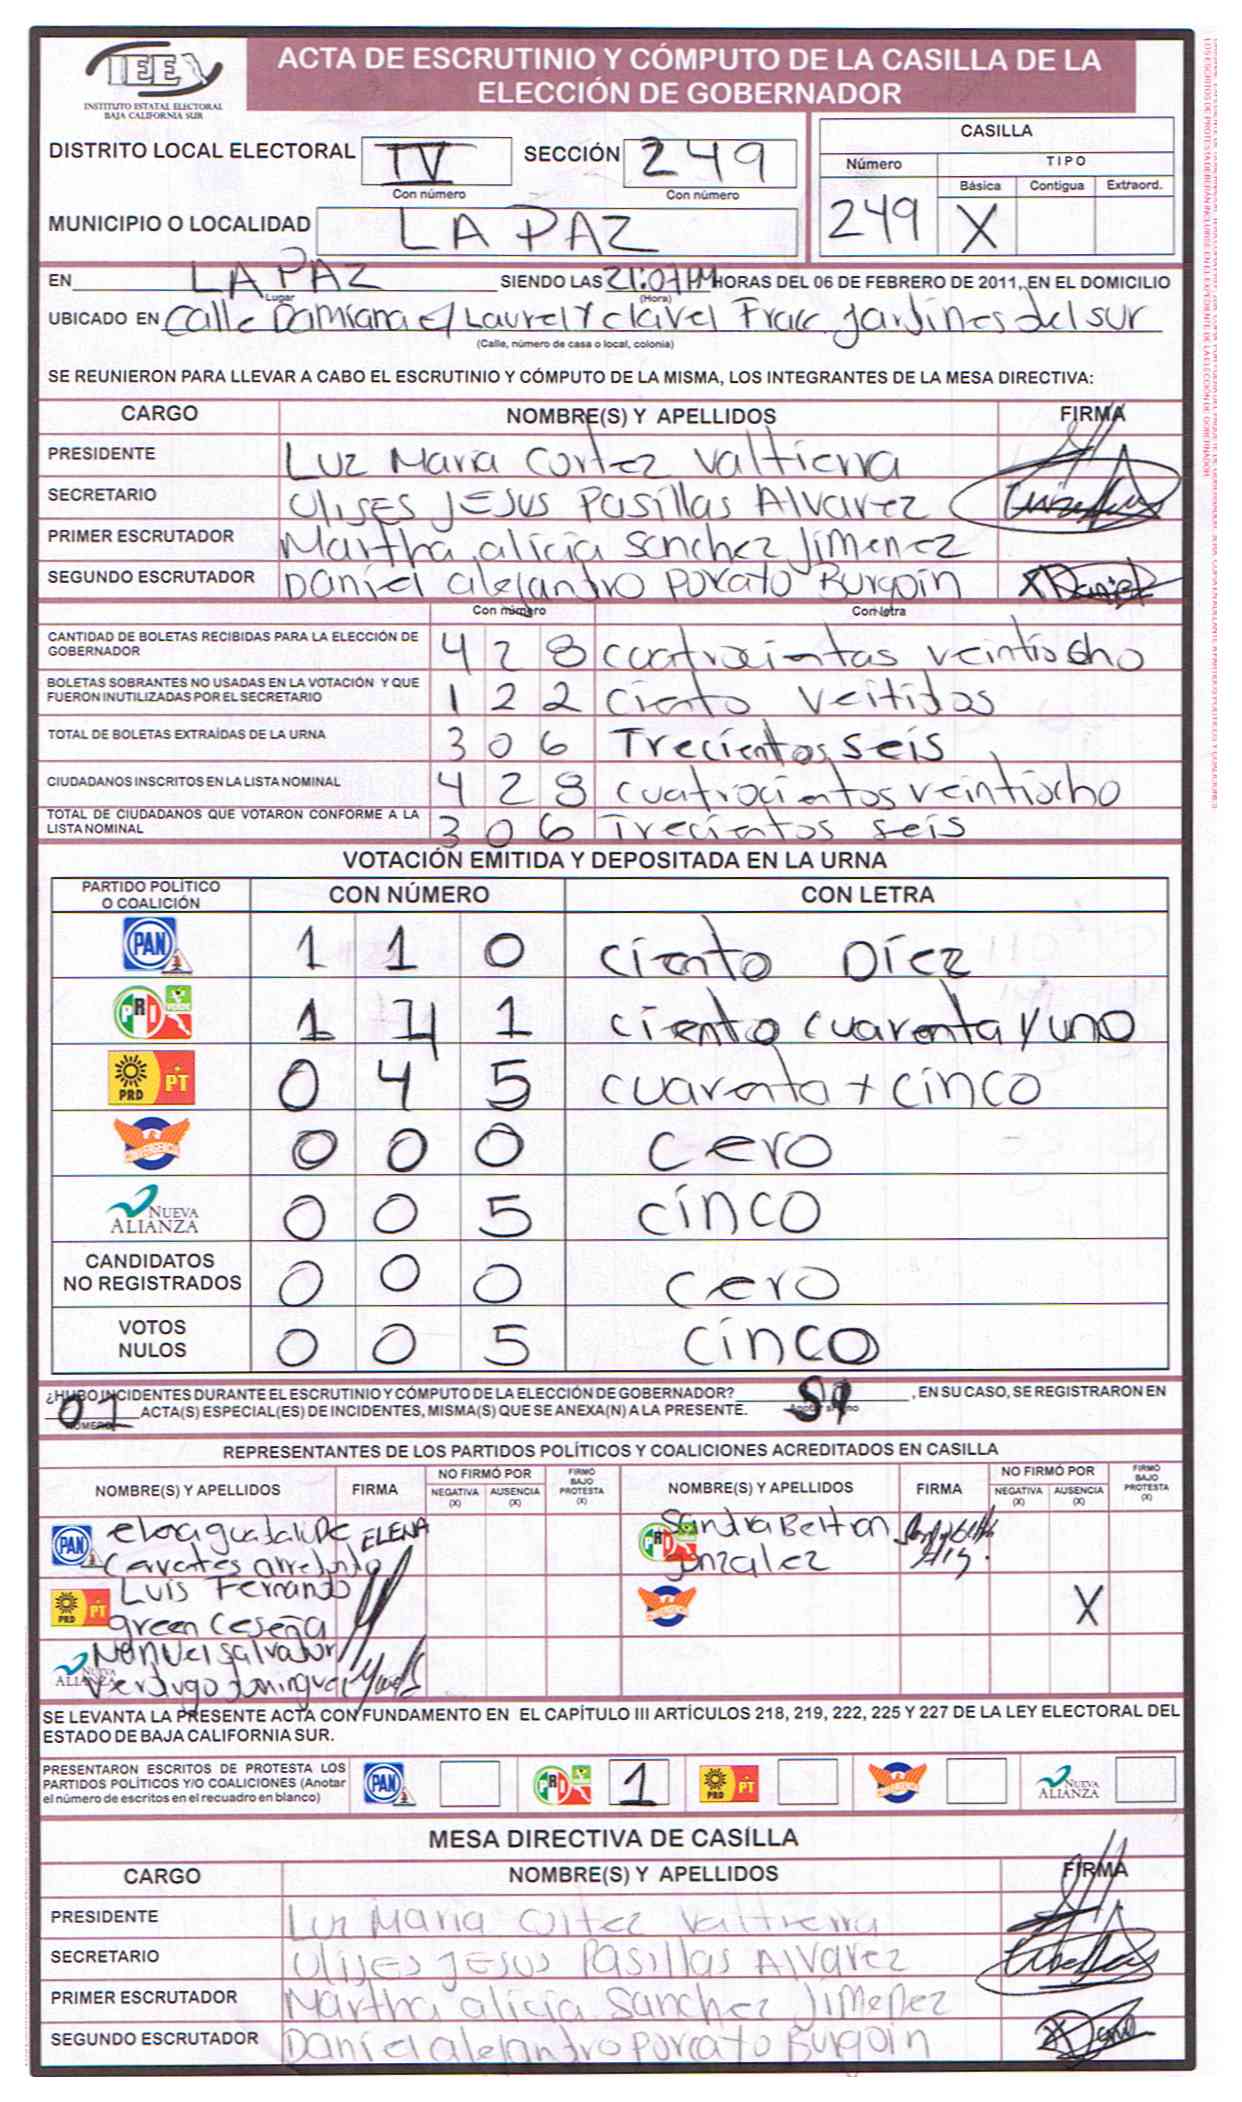 IEE
INSTITUTO ESTATAL ELECTORAL
BAJA CALIFORNIA SUR
ACTA DE ESCRUTINIO Y CÓMPUTO DE LA CASILLA DE LA
ELECCIÓN DE GOBERNADOR
DISTRITO LOCAL ELECTORAL IV SECCIÓN 249
Con número Con número
MUNICIPIO O LOCALIDAD LA PAZ
CASILLA
Número TIPO
Básica Contigua Extraord.
249 X
EN LA PAZ SIENDO LAS 21:07 PM HORAS DEL 06 DE FEBRERO DE 2011, EN EL DOMICILIO
Lugar (Hora)
UBICADO EN Calle Damiana e/ Laurel Y clavel Fracc. Jardines del sur
(Calle, número de casa o local, colonia)
SE REUNIERON PARA LLEVAR A CABO EL ESCRUTINIO Y CÓMPUTO DE LA MISMA, LOS INTEGRANTES DE LA MESA DIRECTIVA:
CARGO NOMBRE(S) Y APELLIDOS FIRMA
PRESIDENTE Luz Maria Cortez Valtierra
SECRETARIO Ulises JESUS Pasillas Alvarez
PRIMER ESCRUTADOR Martha alicia Sanchez Jimenez
SEGUNDO ESCRUTADOR Daniel alejandro Porcato Burgoin Daniel
Con número Con letra
CANTIDAD DE BOLETAS RECIBIDAS PARA LA ELECCIÓN DE
GOBERNADOR 4 2 8 cuatrocientas veintiocho
BOLETAS SOBRANTES NO USADAS EN LA VOTACIÓN Y QUE
FUERON INUTILIZADAS POR EL SECRETARIO 1 2 2 ciento veitidos
TOTAL DE BOLETAS EXTRAÍDAS DE LA URNA 3 0 6 Trecientos seis
CIUDADANOS INSCRITOS EN LA LISTA NOMINAL 4 2 8 cuatrocientos veintiocho
TOTAL DE CIUDADANOS QUE VOTARON CONFORME A LA
LISTA NOMINAL 3 0 6 Trecientos seis
VOTACIÓN EMITIDA Y DEPOSITADA EN LA URNA
PARTIDO POLÍTICO
O COALICIÓN CON NÚMERO CON LETRA
PAN 1 1 0 ciento Diez
PRI VERDE 1 4 1 ciento cuarenta y uno
PRD PT 0 4 5 cuarenta + cinco
CONVERGENCIA 0 0 0 cero
NUEVA ALIANZA 0 0 5 cinco
CANDIDATOS
NO REGISTRADOS 0 0 0 cero
VOTOS
NULOS 0 0 5 cinco
¿HUBO INCIDENTES DURANTE EL ESCRUTINIO Y CÓMPUTO DE LA ELECCIÓN DE GOBERNADOR? SI, EN SU CASO, SE REGISTRARON EN
Anotar si o no
01 ACTA(S) ESPECIAL(ES) DE INCIDENTES, MISMA(S) QUE SE ANEXA(N) A LA PRESENTE.
NÚMERO
REPRESENTANTES DE LOS PARTIDOS POLÍTICOS Y COALICIONES ACREDITADOS EN CASILLA
NOMBRE(S) Y APELLIDOS FIRMA NO FIRMÓ POR NEGATIVA (X) AUSENCIA (X) FIRMÓ BAJO PROTESTA (X) NOMBRE(S) Y APELLIDOS FIRMA NO FIRMÓ POR NEGATIVA (X) AUSENCIA (X) FIRMÓ BAJO PROTESTA (X)
PAN guadalupe ELENA PRI Sandra Beltran
Gonzalez
PRD PT Luis Fernando CONVERGENCIA X
green Ceseña
NUEVA ALIANZA Manuel Salvador
Verdugo
SE LEVANTA LA PRESENTE ACTA CON FUNDAMENTO EN EL CAPÍTULO III ARTÍCULOS 218, 219, 222, 225 Y 227 DE LA LEY ELECTORAL DEL
ESTADO DE BAJA CALIFORNIA SUR.
PRESENTARON ESCRITOS DE PROTESTA LOS
PARTIDOS POLÍTICOS Y/O COALICIONES (Anotar
el número de escritos en el recuadro en blanco) PAN PRI 1 PRD PT CONVERGENCIA NUEVA ALIANZA
MESA DIRECTIVA DE CASÍLLA
CARGO NOMBRE(S) Y APELLIDOS FIRMA
PRESIDENTE Luz Maria Cortez Valtierra
SECRETARIO Ulises JESUS Pasillas Alvarez
PRIMER ESCRUTADOR Martha alicia Sanchez Jimenez
SEGUNDO ESCRUTADOR Daniel alejandro Porcato Burgoin